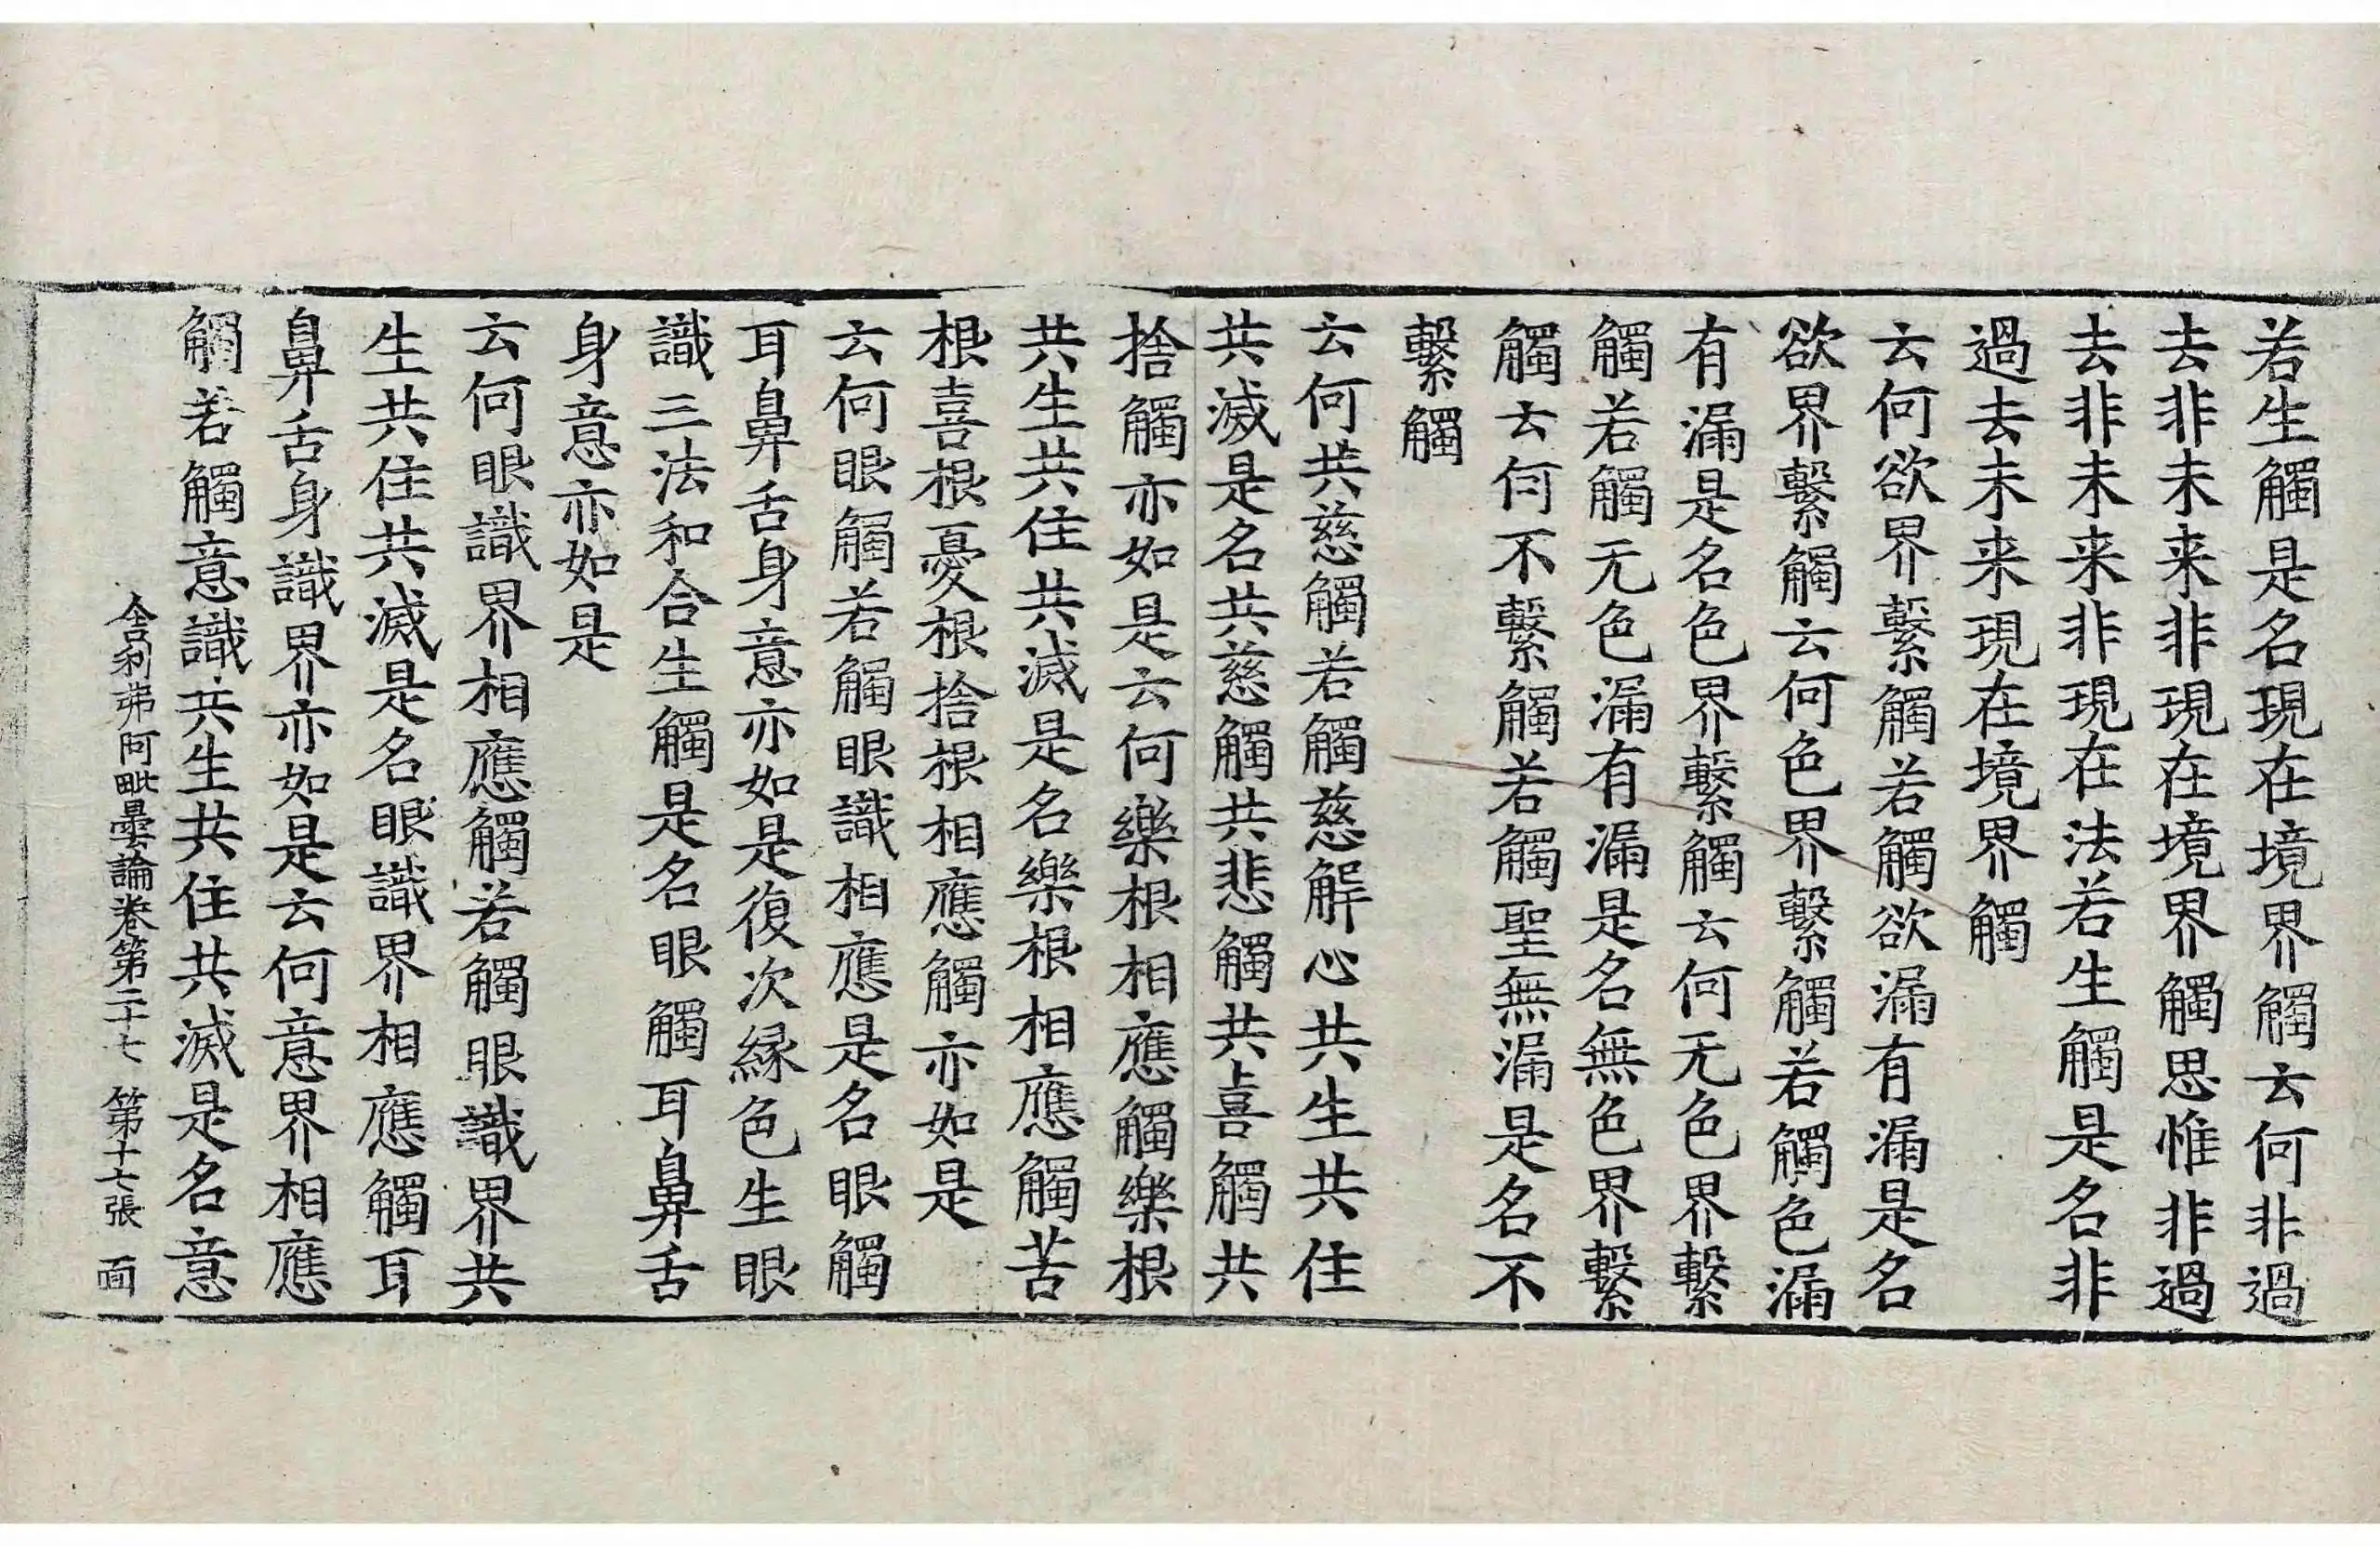 若生觸是名現在境界觸云何非過
去非未来非現在境界觸思惟非過
去非未来非現在法若生觸是名非
過去未来現在境界觸
云何欲界繫觸若觸欲漏有漏是名
欲界繫觸云何色界繫觸若觸色漏
有漏是名色界繫觸云何无色界繫
觸若觸无色漏有漏是名無色界繫
觸云何不繫觸若觸聖無漏是名不
繫觸
云何共慈觸若觸慈解心共生共住
共滅是名共慈觸共悲觸共喜觸共
捨觸亦如是云何樂根相應觸樂根
共生共住共滅是名樂根相應觸苦
根喜根憂根捨根相應觸亦如是
云何眼觸若觸眼識相應是名眼觸
耳鼻舌身意亦如是復次緣色生眼
識三法和合生觸是名眼觸耳鼻舌
身意亦如是
云何眼識界相應觸若觸眼識界共
生共住共滅是名眼識界相應觸耳
鼻舌身識界亦如是云何意界相應
觸若觸意識共生共住共滅是名意
舍利弗阿毗曇論卷第二十七 第十七張 面